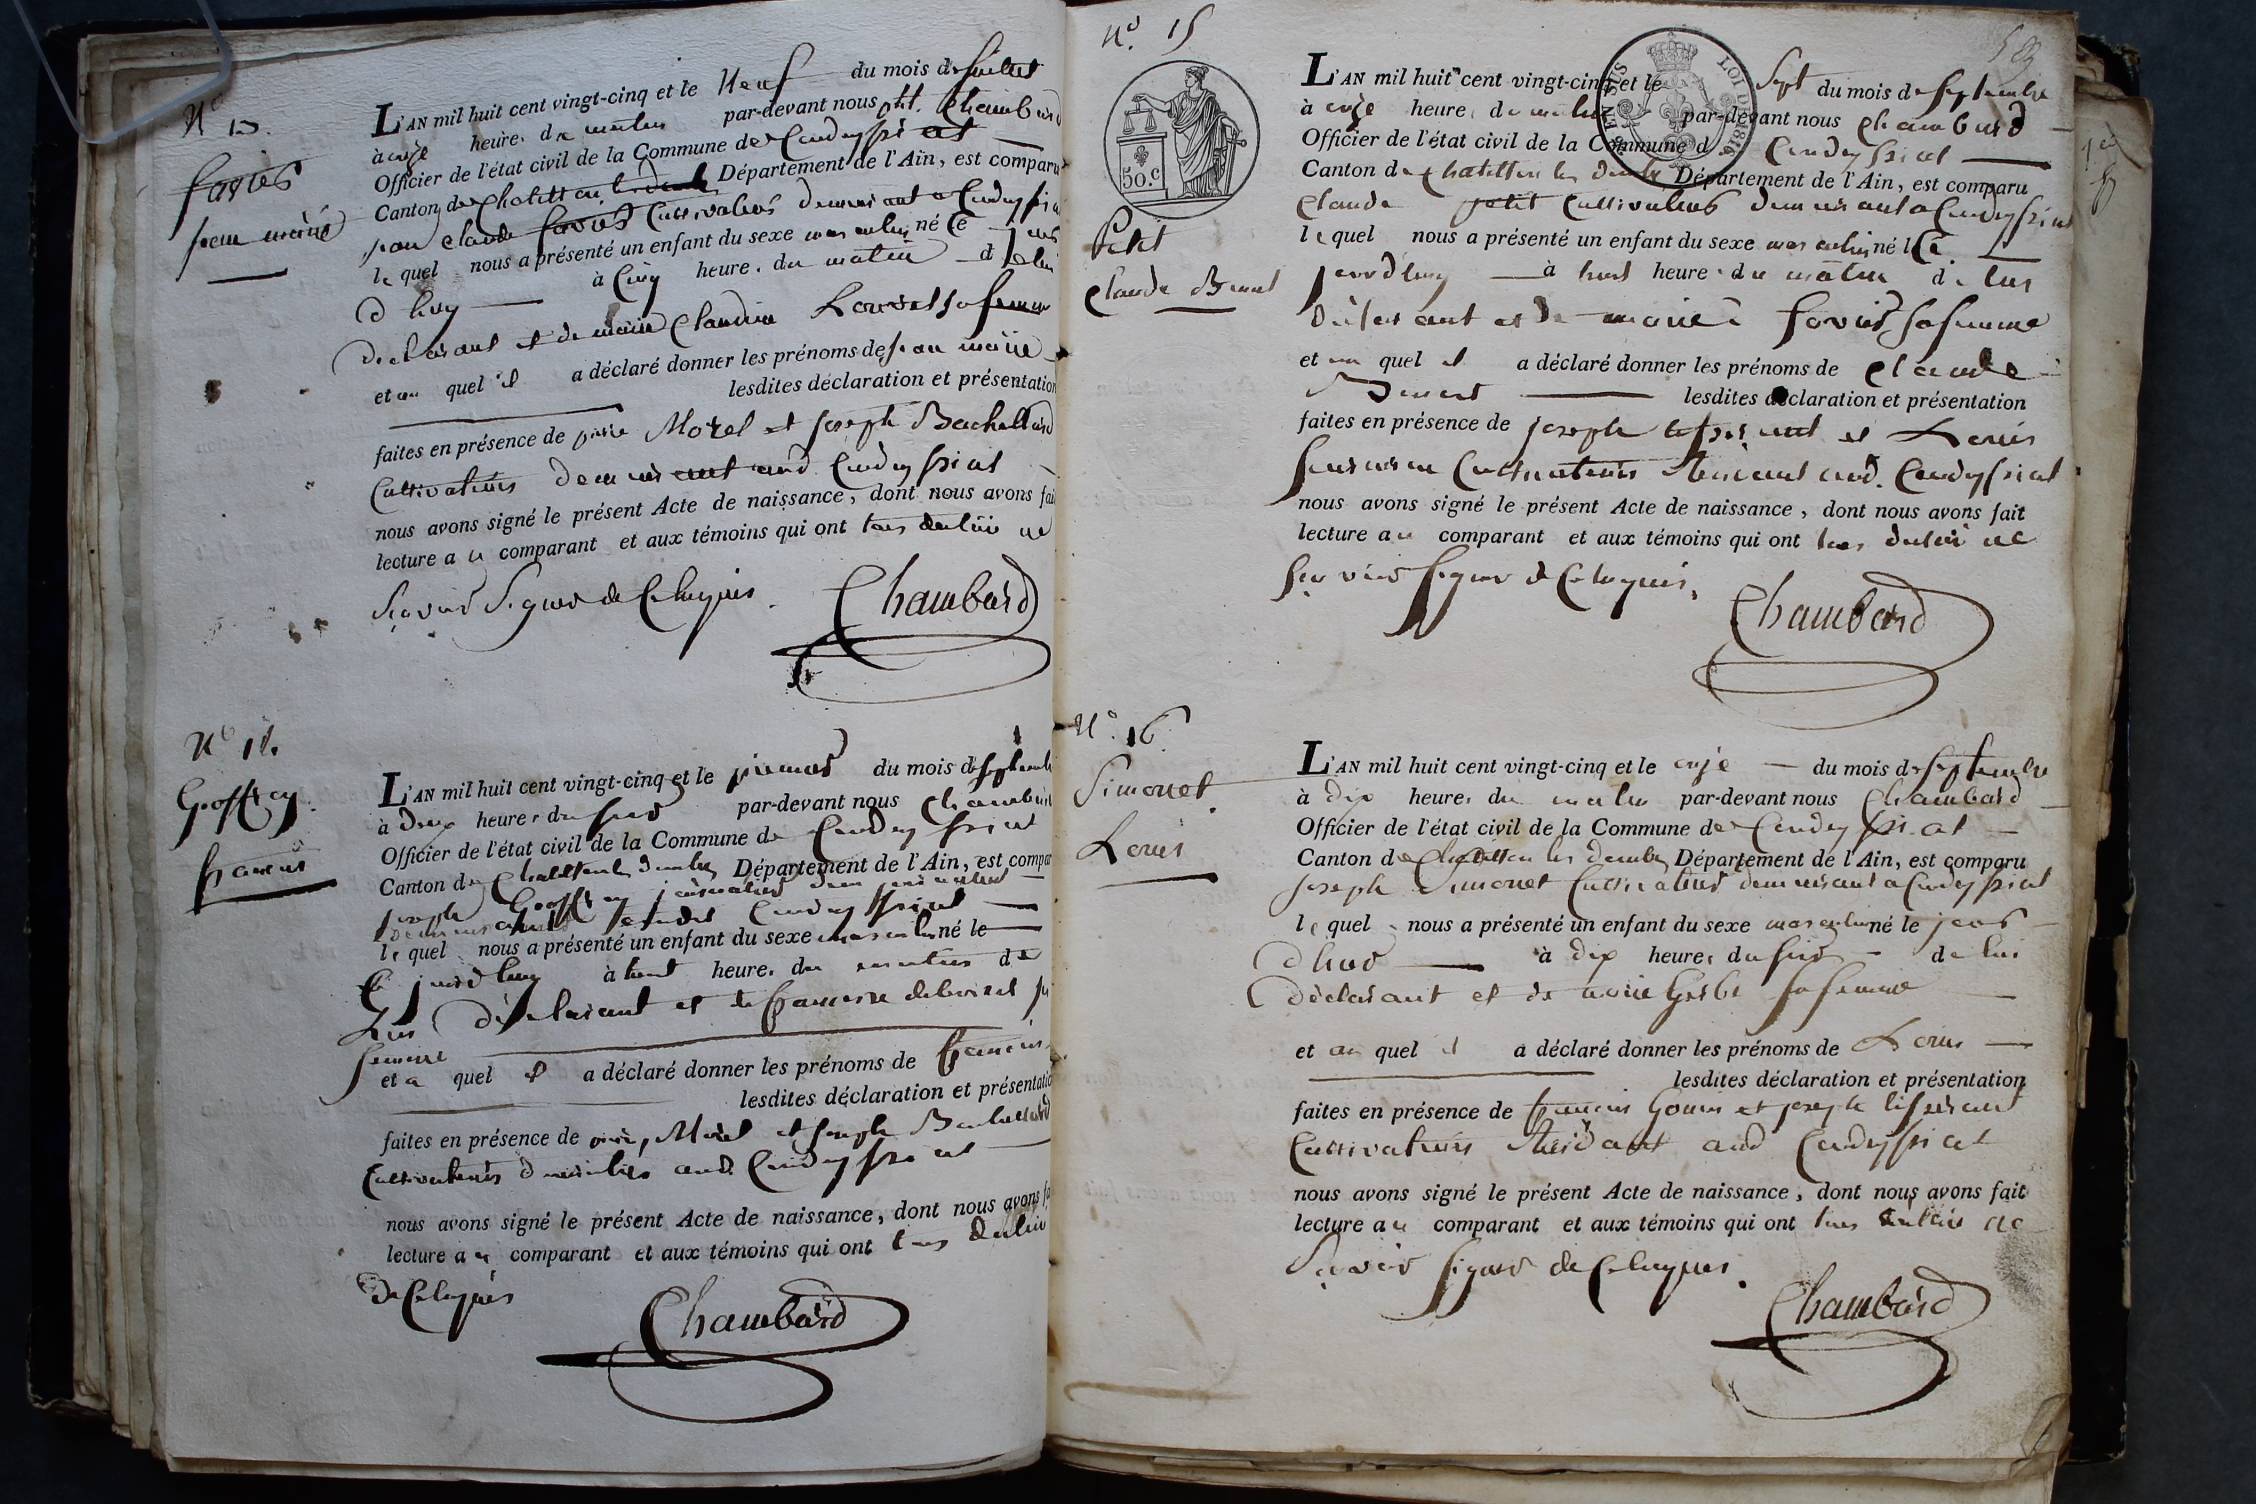 Nº 13.
favier
jean marie
L'AN mil huit cent vingt-cinq et le Neuf du mois de Juillet
à onze heures du matin par-devant nous Chambard
Officier de l'état civil de la Commune de Condeyssiat
Canton de Chatillon les dombes Département de l'Ain, est comparu
jean claude favier Cultivateur demeurant a Condeyssiat
lequel nous a présenté un enfant du sexe masculin né le jour
d huy à Cinq heures du matin de lui
declarant et de marie Claudine Louvet sa femme
et au quel il a déclaré donner les prénoms de jean marie
lesdites déclaration et présentation
faites en présence de pierre Morel et joseph Bachellard
Cultivateurs demeurant aud Condeyssiat
nous avons signé le présent Acte de naissance, dont nous avons fai
lecture au comparant et aux témoins qui ont tous declaré ne
Sçavoir Signer de Ce Requis.
Chambard
Nº 14.
Geoffray.
francois
L'AN mil huit cent vingt-cinq et le premier du mois de septembre
à Deux heures du soir par-devant nous Chambard
Officier de l'état civil de la Commune de Condeyssiat
Canton de Chatillon les dombes Département de l'Ain, est compar
joseph Geoffray journalier
Condeyssiat
lequel nous a présenté un enfant du sexe masculin né le
jourd huy à huit heures du matin de
Lui déclarant et de francoise sa
femme
et a quel il a déclaré donner les prénoms de francois
lesdites déclaration et présentatio
faites en présence de pierre Morel et joseph Bachellard
Cultivateurs domiciliés aud. Condeyssiat
nous avons signé le présent Acte de naissance, dont nous avons fa
lecture au comparant et aux témoins qui ont tous declaré
de Ce Requis
Chambard
Nº. 15
50.c
LOI DE 1816
583
Petit
Claude Benoit
L'AN mil huit cent vingt-cinq et le Sept du mois de septembre
à onze heures du matin par-devant nous Chambard
Officier de l'état civil de la Commune d Condeyssiat
Canton de Chatillon les dombes Département de l'Ain, est comparu
Claude petit Cultivateur demeurant a Condeyssiat
lequel nous a présenté un enfant du sexe masculin né le
jourd'huy à huit heures du matin de lui
Déclarant et de marie favier sa femme
et au quel il a déclaré donner les prénoms de Claude
Benoit lesdites déclaration et présentation
faites en présence de joseph tisserant et Louis
Cultivateurs Residant aud. Condeyssiat
nous avons signé le présent Acte de naissance, dont nous avons fait
lecture au comparant et aux témoins qui ont tous declaré ne
Sçavoir signer de Ce Requis.
Chambard
Nº. 16.
Simonet.
Louis
L'AN mil huit cent vingt-cinq et le onze du mois de septembre
à dix heures du matin par-devant nous Chambard
Officier de l'état civil de la Commune de Condeyssiat
Canton de Chatillon les dombes Département de l'Ain, est comparu
joseph Simonet Cultivateur demeurant a Condeyssiat
lequel nous a présenté un enfant du sexe masculin né le jour
d'hier à dix heures du soir de lui
déclarant et de marie Gerbe sa femme
et au quel il a déclaré donner les prénoms de Louis
lesdites déclaration et présentation
faites en présence de francois Gouin et joseph tisserant
Cultivateurs Residant aud Condeyssiat
nous avons signé le présent Acte de naissance, dont nous avons fait
lecture au comparant et aux témoins qui ont tous declaré ne
Sçavoir signer de Ce Requis.
Chambard